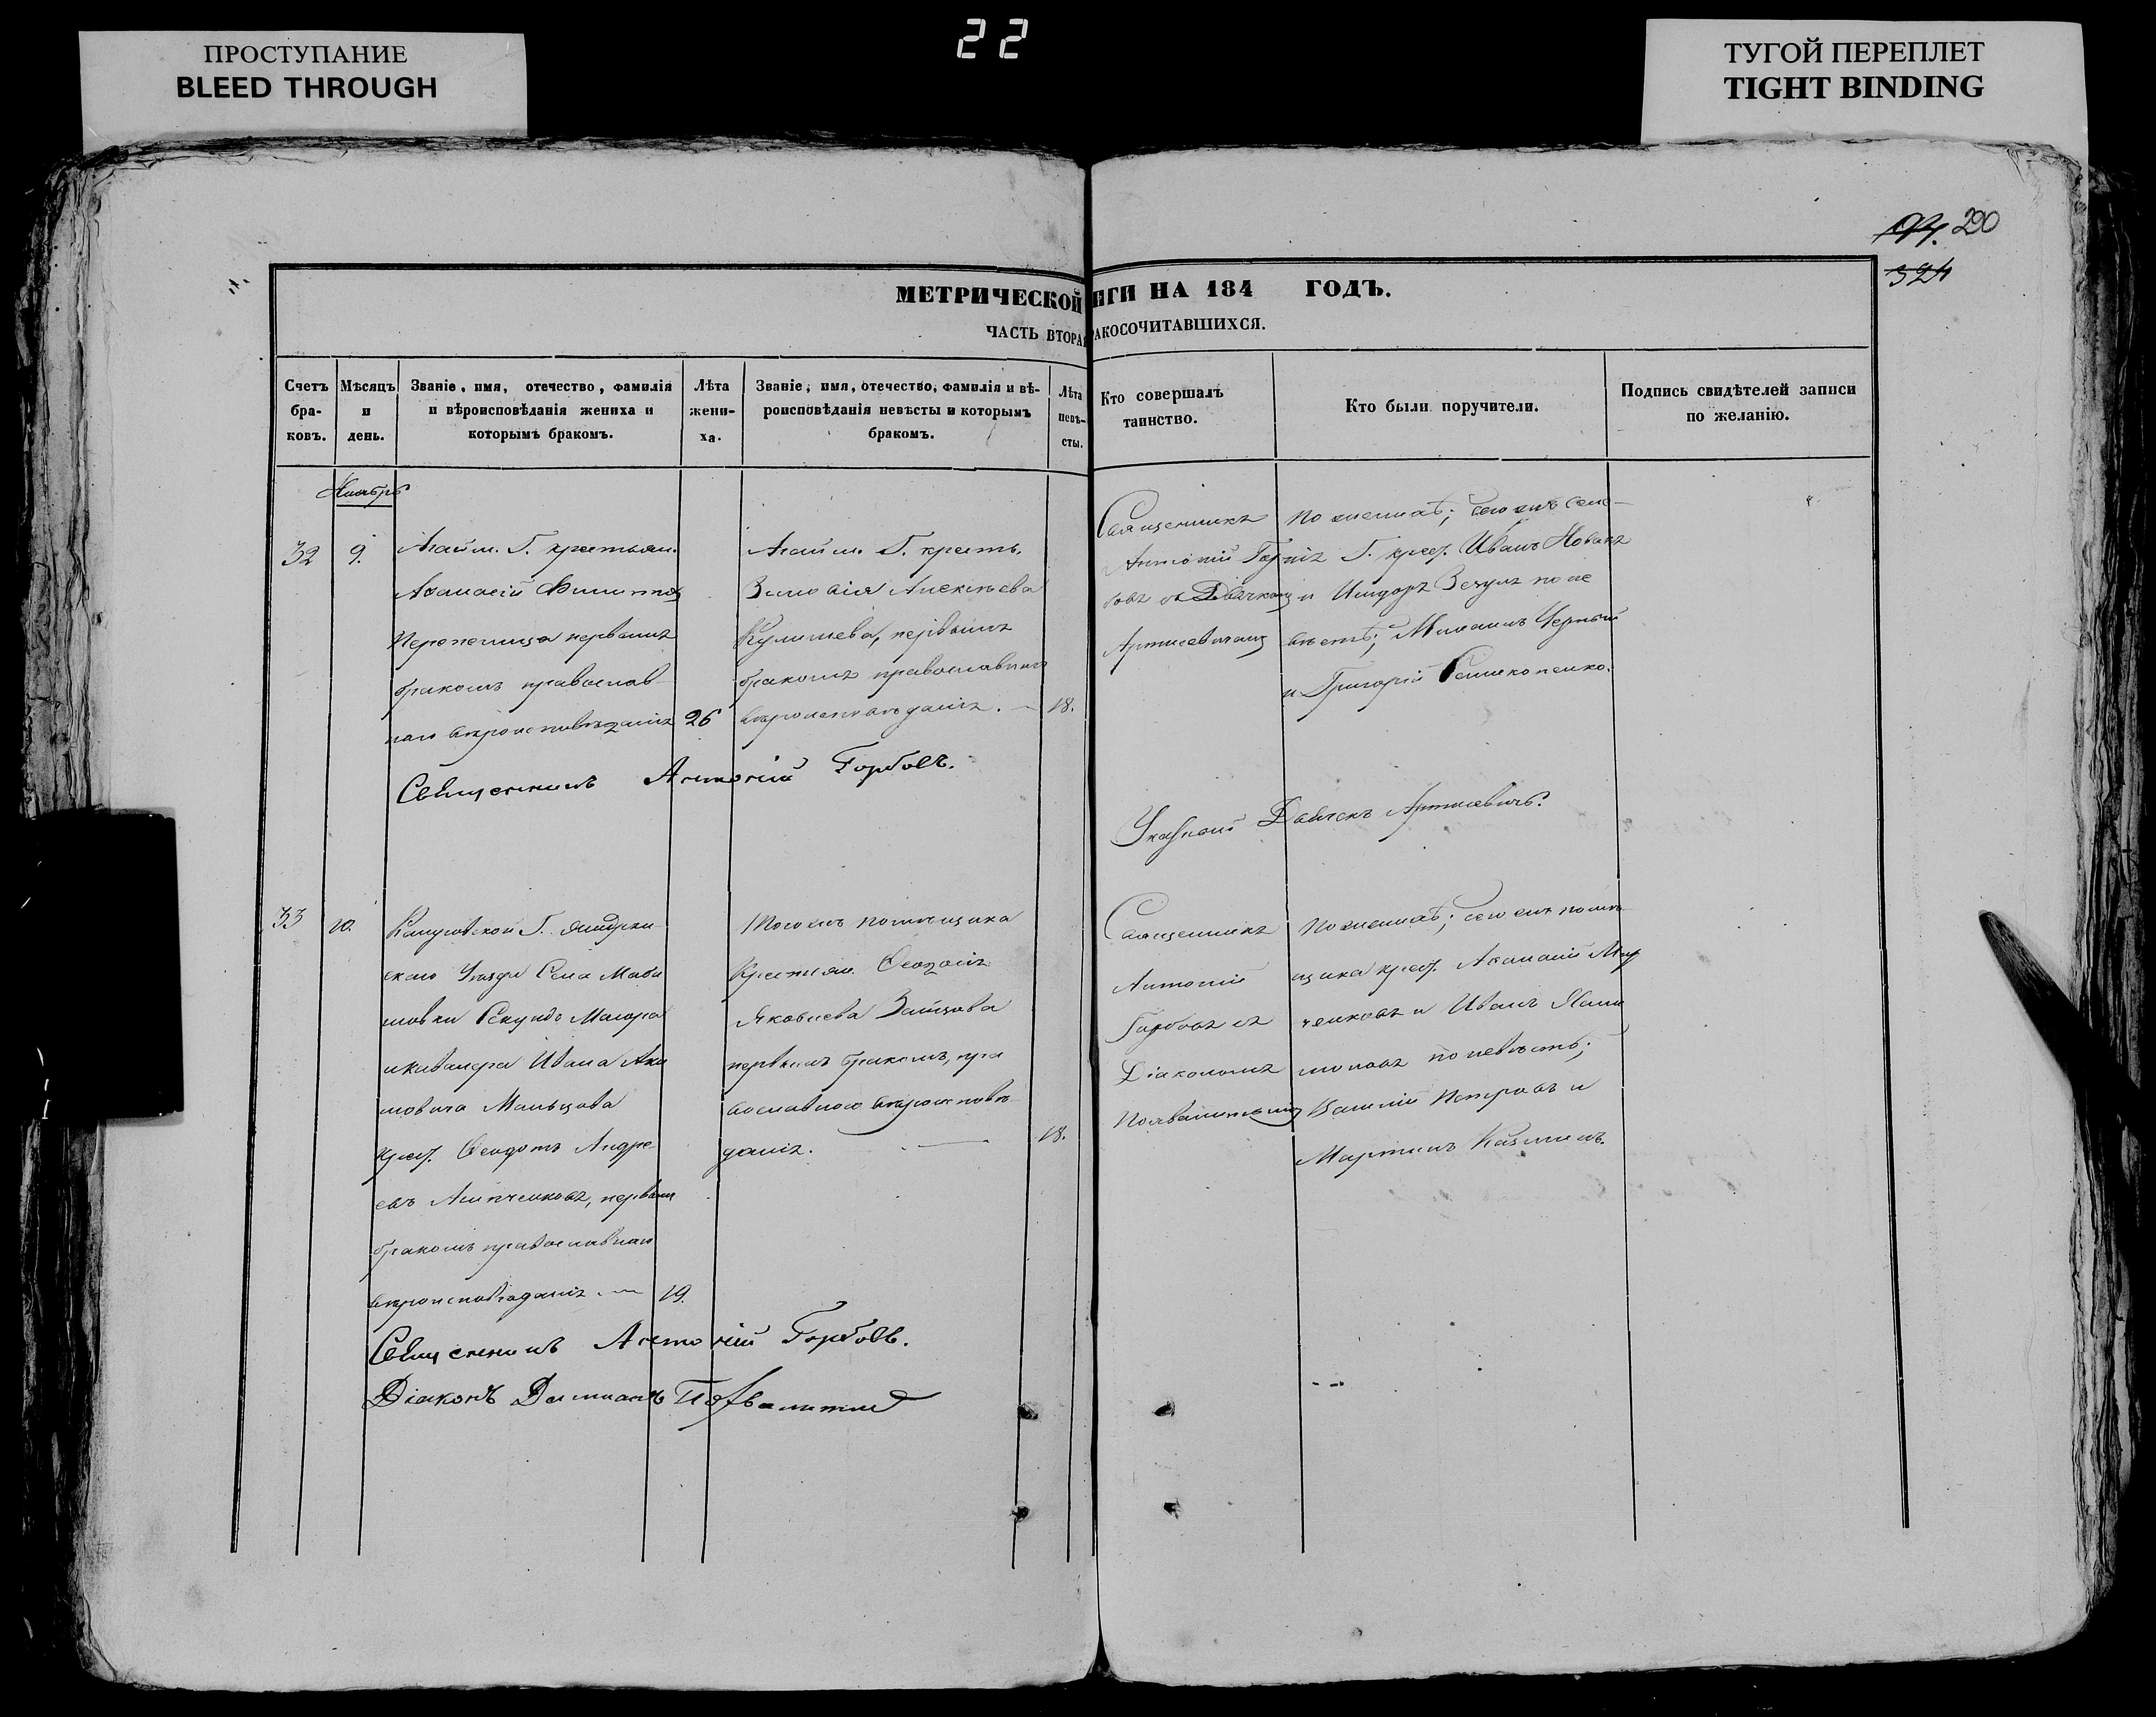 ПРОСТУПАНИЕ
BLEED THROUGH
22
ТУГОЙ ПЕРЕПЛЕТ
TIGHT BINDING
290
324
МЕТРИЧЕСКОЙ ИГИ НА 184 ГОДЪ.
ЧАСТЬ ВТОРАЯ РАКОСОЧИТАВШИХСЯ.
Счетъ бра- ковъ.
Мѣсяцъ и день.
Званіе, имя, отечество, фамилія и вѣроисповѣданія жениха и которымъ бракомъ.
Лѣта жени- ха.
Званіе, имя, отечество, фамилія и вѣ- роисповѣданія невѣсты и которымъ бракомъ.
Лѣта невѣ- сты.
Кто совершалъ таинство.
Кто были поручители.
Подпись свидѣтелей записи по желанію.
Ноябрь
32
9.
Г. крестьян.
Аѳанасій Филиппов
Перепелица первымъ
бракомъ православ-
наго вѣроисповѣданія
26
Г. кресть.
Зиновія Алексѣева
Кулишева, первымъ
бракомъ православнаго
вѣроисповѣданія.
18.
Священникъ
Антоній Гор
бовъ съ Дьячкомъ
Артисевичемъ
по женихѣ; сего жъ селе-
нія Г. крес. Иванъ Новакъ
и Исидоръ по не
вѣстѣ; Михаилъ Черный
и Григорій
Священникъ Антоній Горбовъ.
Указной Дьячекъ Артисевичъ.
33
10.
Калужской Г. Жиздрин
скаго Уѣзда Села Маки
мовки Секундъ Маіора
икавалера Ивана Аки
мовича Мальцова
крес. Ѳеодотъ Андре-
евъ Акипченковъ, первымъ
бракомъ православнаго
вѣроисповѣданія
19.
Того жъ помѣщика
Крестьян. Ѳеодосія
Яковлева Зайцова
первымъ бракомъ, пра
вославного вѣроисповѣ-
данія.
18.
Священникъ
Антоній
Горбовъ съ
Діакономъ
по женихѣ; сего жъ помѣ-
щика крес. Аѳанасій
ченковъ и Иванъ
по невѣстѣ;
Василій Петровъ и
Мартинъ Казминъ.
Священникъ Антоній Горбовъ.
Діаконъ Даміанъ